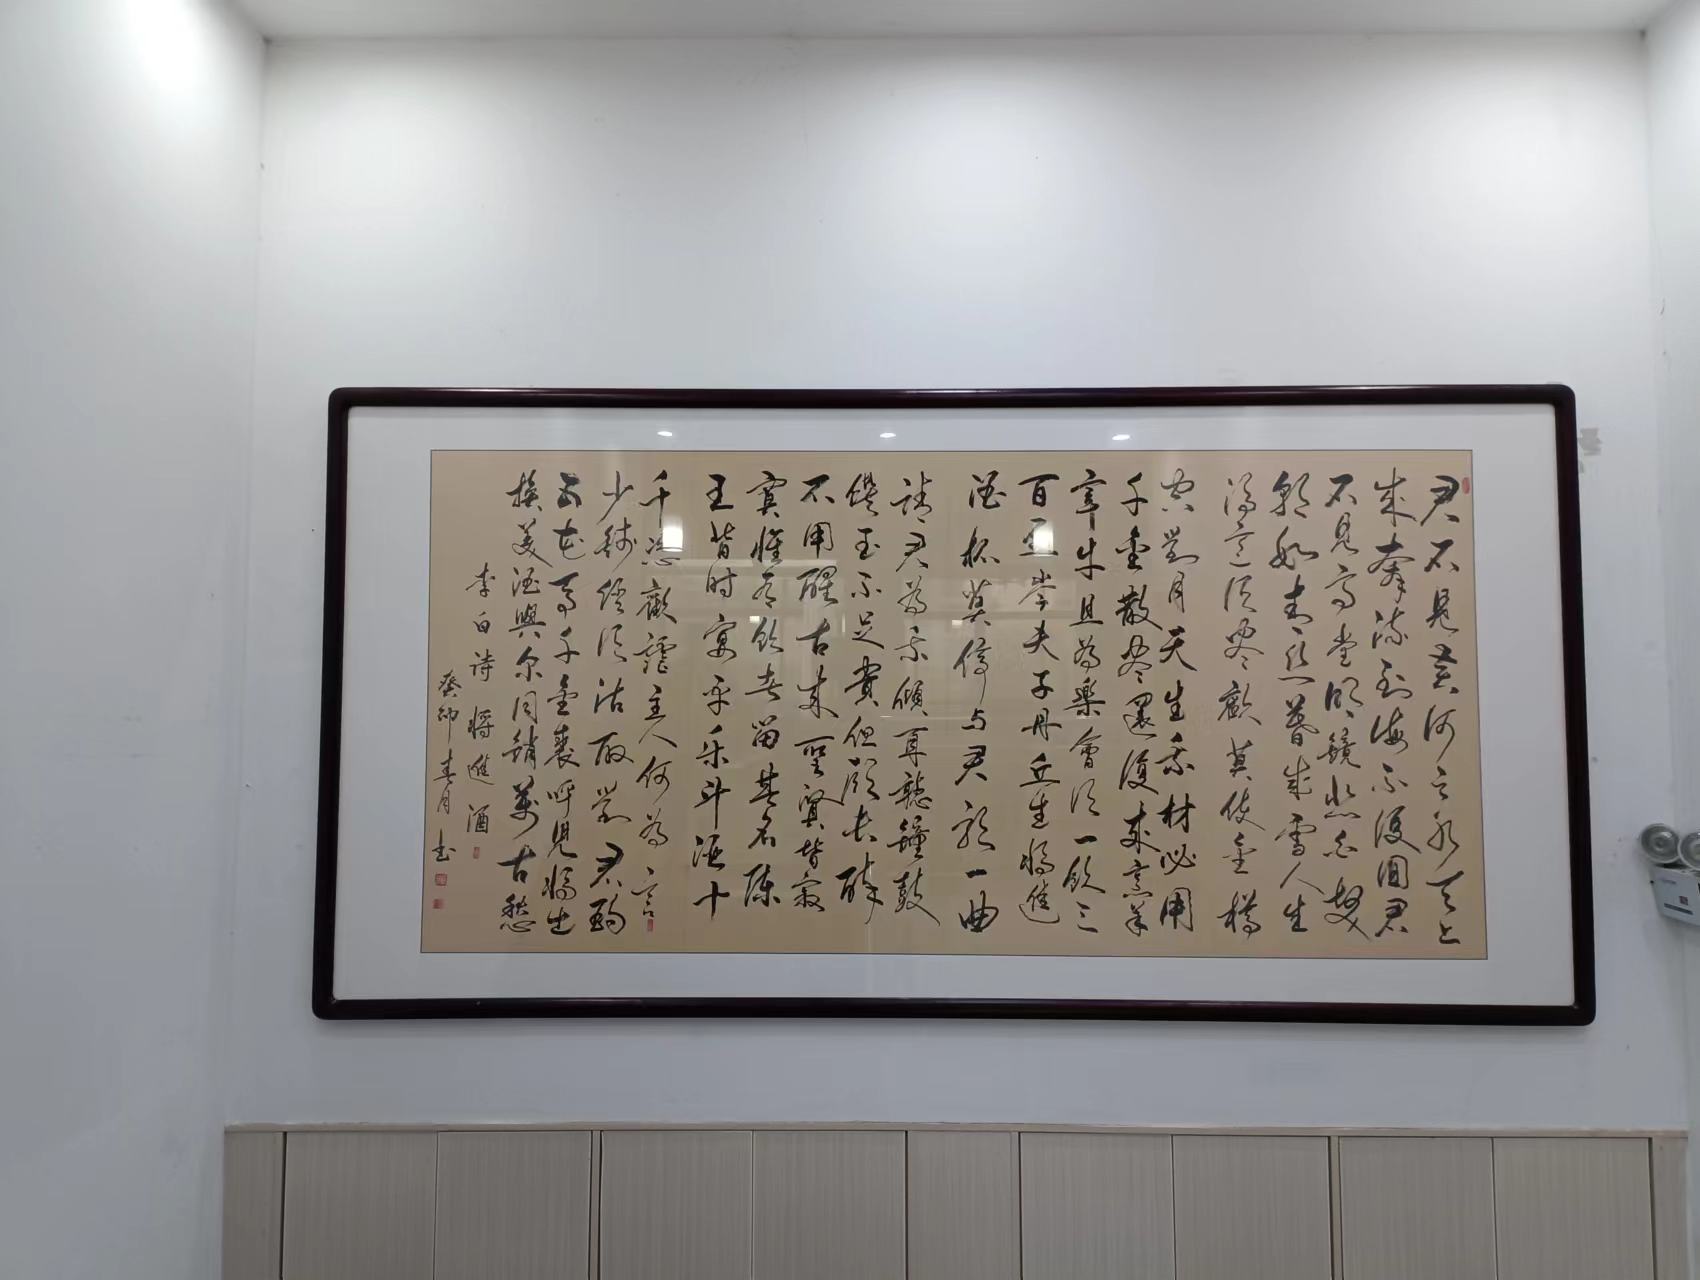 君不見黃河之水天上
來奔流到海不復回君
不見高堂明鏡悲白髮
朝如青絲暮成雪人生
得意須盡歡莫使金樽
空對月天生我材必用
千金散盡還復來烹羊
宰牛且為樂會須一飲三
百杯岑夫子丹丘生將進
酒杯莫停与君歌一曲
請君為我傾耳聽鐘鼓
饌玉不足貴但願長醉
不用醒古來聖賢皆寂
寞惟有飲者留其名陳
王昔时宴平乐斗酒十
千恣歡謔主人何為言
少錢徑須沽取對君酌
五花馬千金裘呼兒將出
換美酒與尔同銷萬古愁
李白诗 將進酒
癸卯春月书